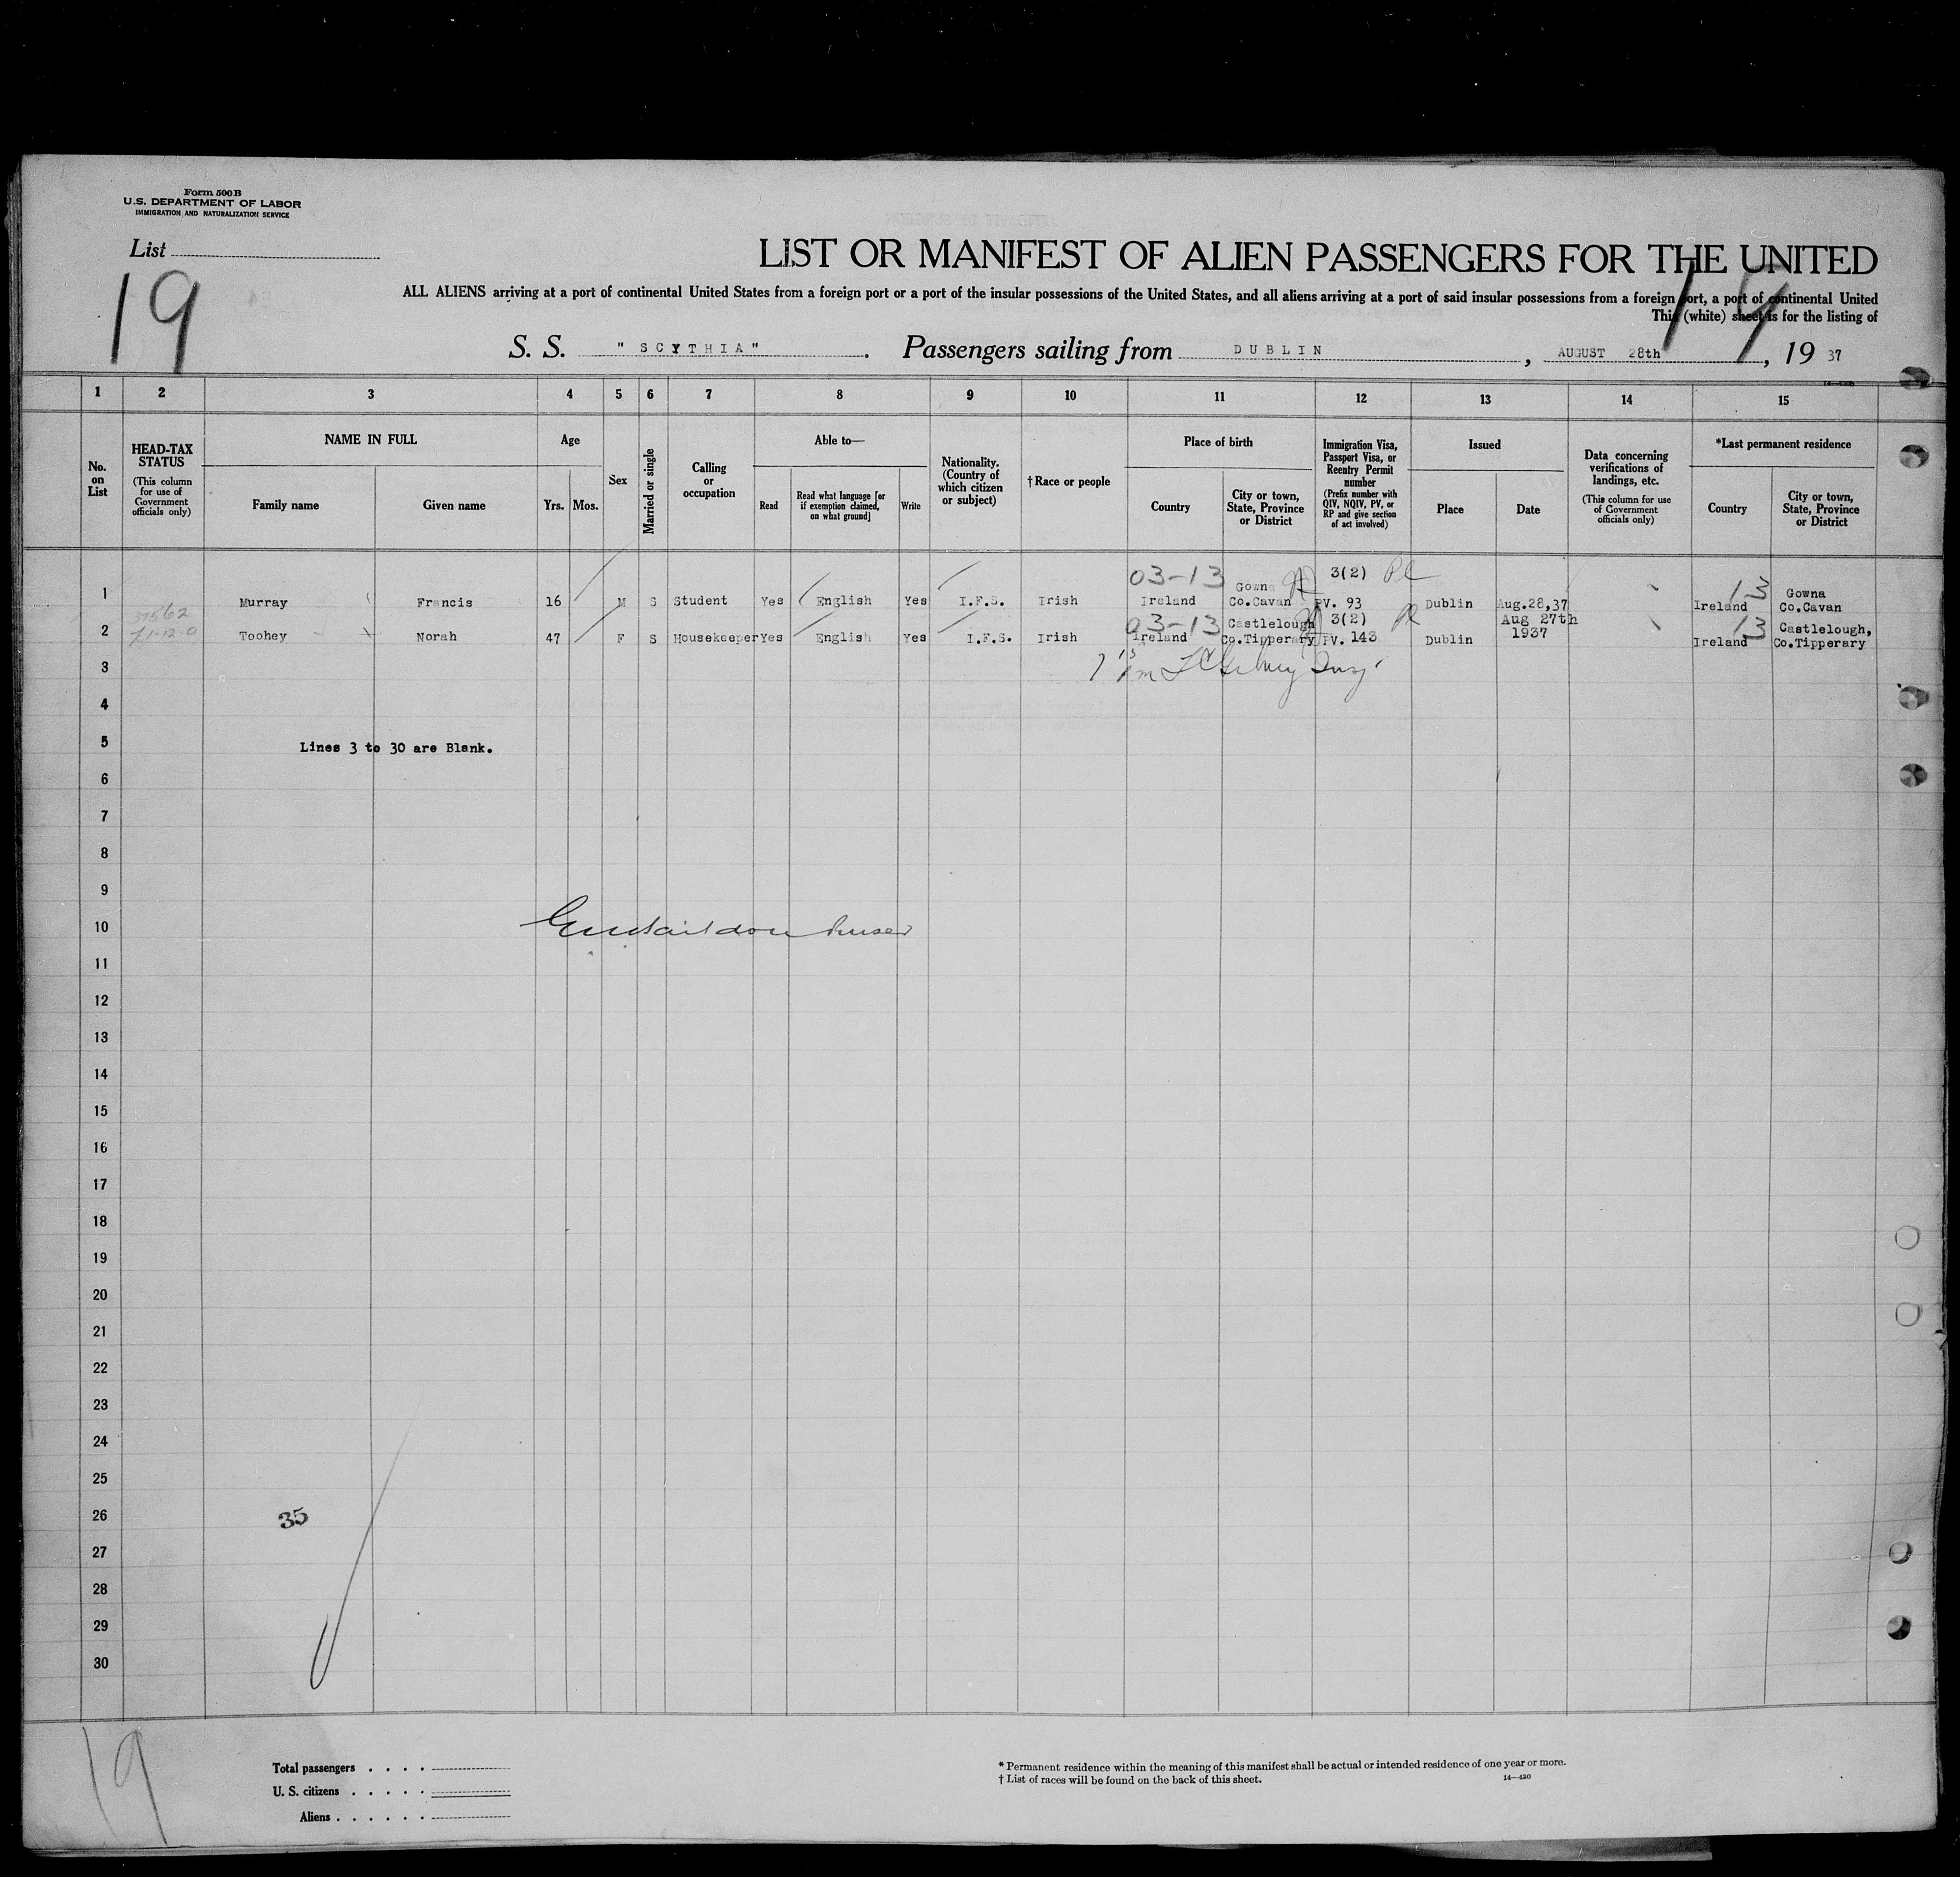 Form 500 B
U.S. DEPARTMENT OF LABOR
IMMIGRATION AND NATURALIZATION SERVICE
List
19
LIST OR MANIFEST OF ALIEN PASSENGERS FOR THE UNITED
ALL ALIENS arriving at a port of continental United States from a foreign port or a port of the insular possessions of the United States, and all aliens arriving at a port of said insular possessions from a foreign port, a port of continental United
This (white) sheet is for the listing of
14
S. S. "SCYTHIA". Passengers sailing from DUBLIN, AUGUST 28th, 19 37
1 2 3 4 5 6 7 8 9 10 11 12 13 14 15
No. on List
HEAD-TAX STATUS
(This column for use of Government officials only)
NAME IN FULL
Family name
Given name
Age
Yrs.
Mos.
Sex
Married or single
Calling or occupation
Able to—
Read
Read what language [or if exemption claimed, on what ground]
Write
Nationality. (Country of which citizen or subject)
†Race or people
Place of birth
Country
City or town, State, Province or District
Immigration Visa, Passport Visa, or Reentry Permit number
(Prefix number with QIV, NQIV, PV, or RP and give section of act involved)
Issued
Place
Date
Data concerning verifications of landings, etc.
(This column for use of Government officials only)
*Last permanent residence
Country
City or town, State, Province or District
03-13 3(2) 13
1 Murray Francis 16 M S Student Yes English Yes I.F.S. Irish Ireland Gowna Co.Cavan PV. 93 Dublin Aug.28,37 Ireland Gowna Co.Cavan
03-13 3(2) 13
2 Toohey Norah 47 F S Housekeeper Yes English Yes I.F.S. Irish Ireland Castlelough Co.Tipperary PV. 143 Dublin Aug 27th 1937 Ireland Castlelough, Co.Tipperary
3
4
5 Lines 3 to 30 are Blank.
6
7
8
9
10
11
12
13
14
15
16
17
18
19
20
21
22
23
24
25
26 35
27
28
29
30
19
Total passengers . . . .
U. S. citizens . . . . .
Aliens . . . . . .
* Permanent residence within the meaning of this manifest shall be actual or intended residence of one year or more.
† List of races will be found on the back of this sheet.
14—430